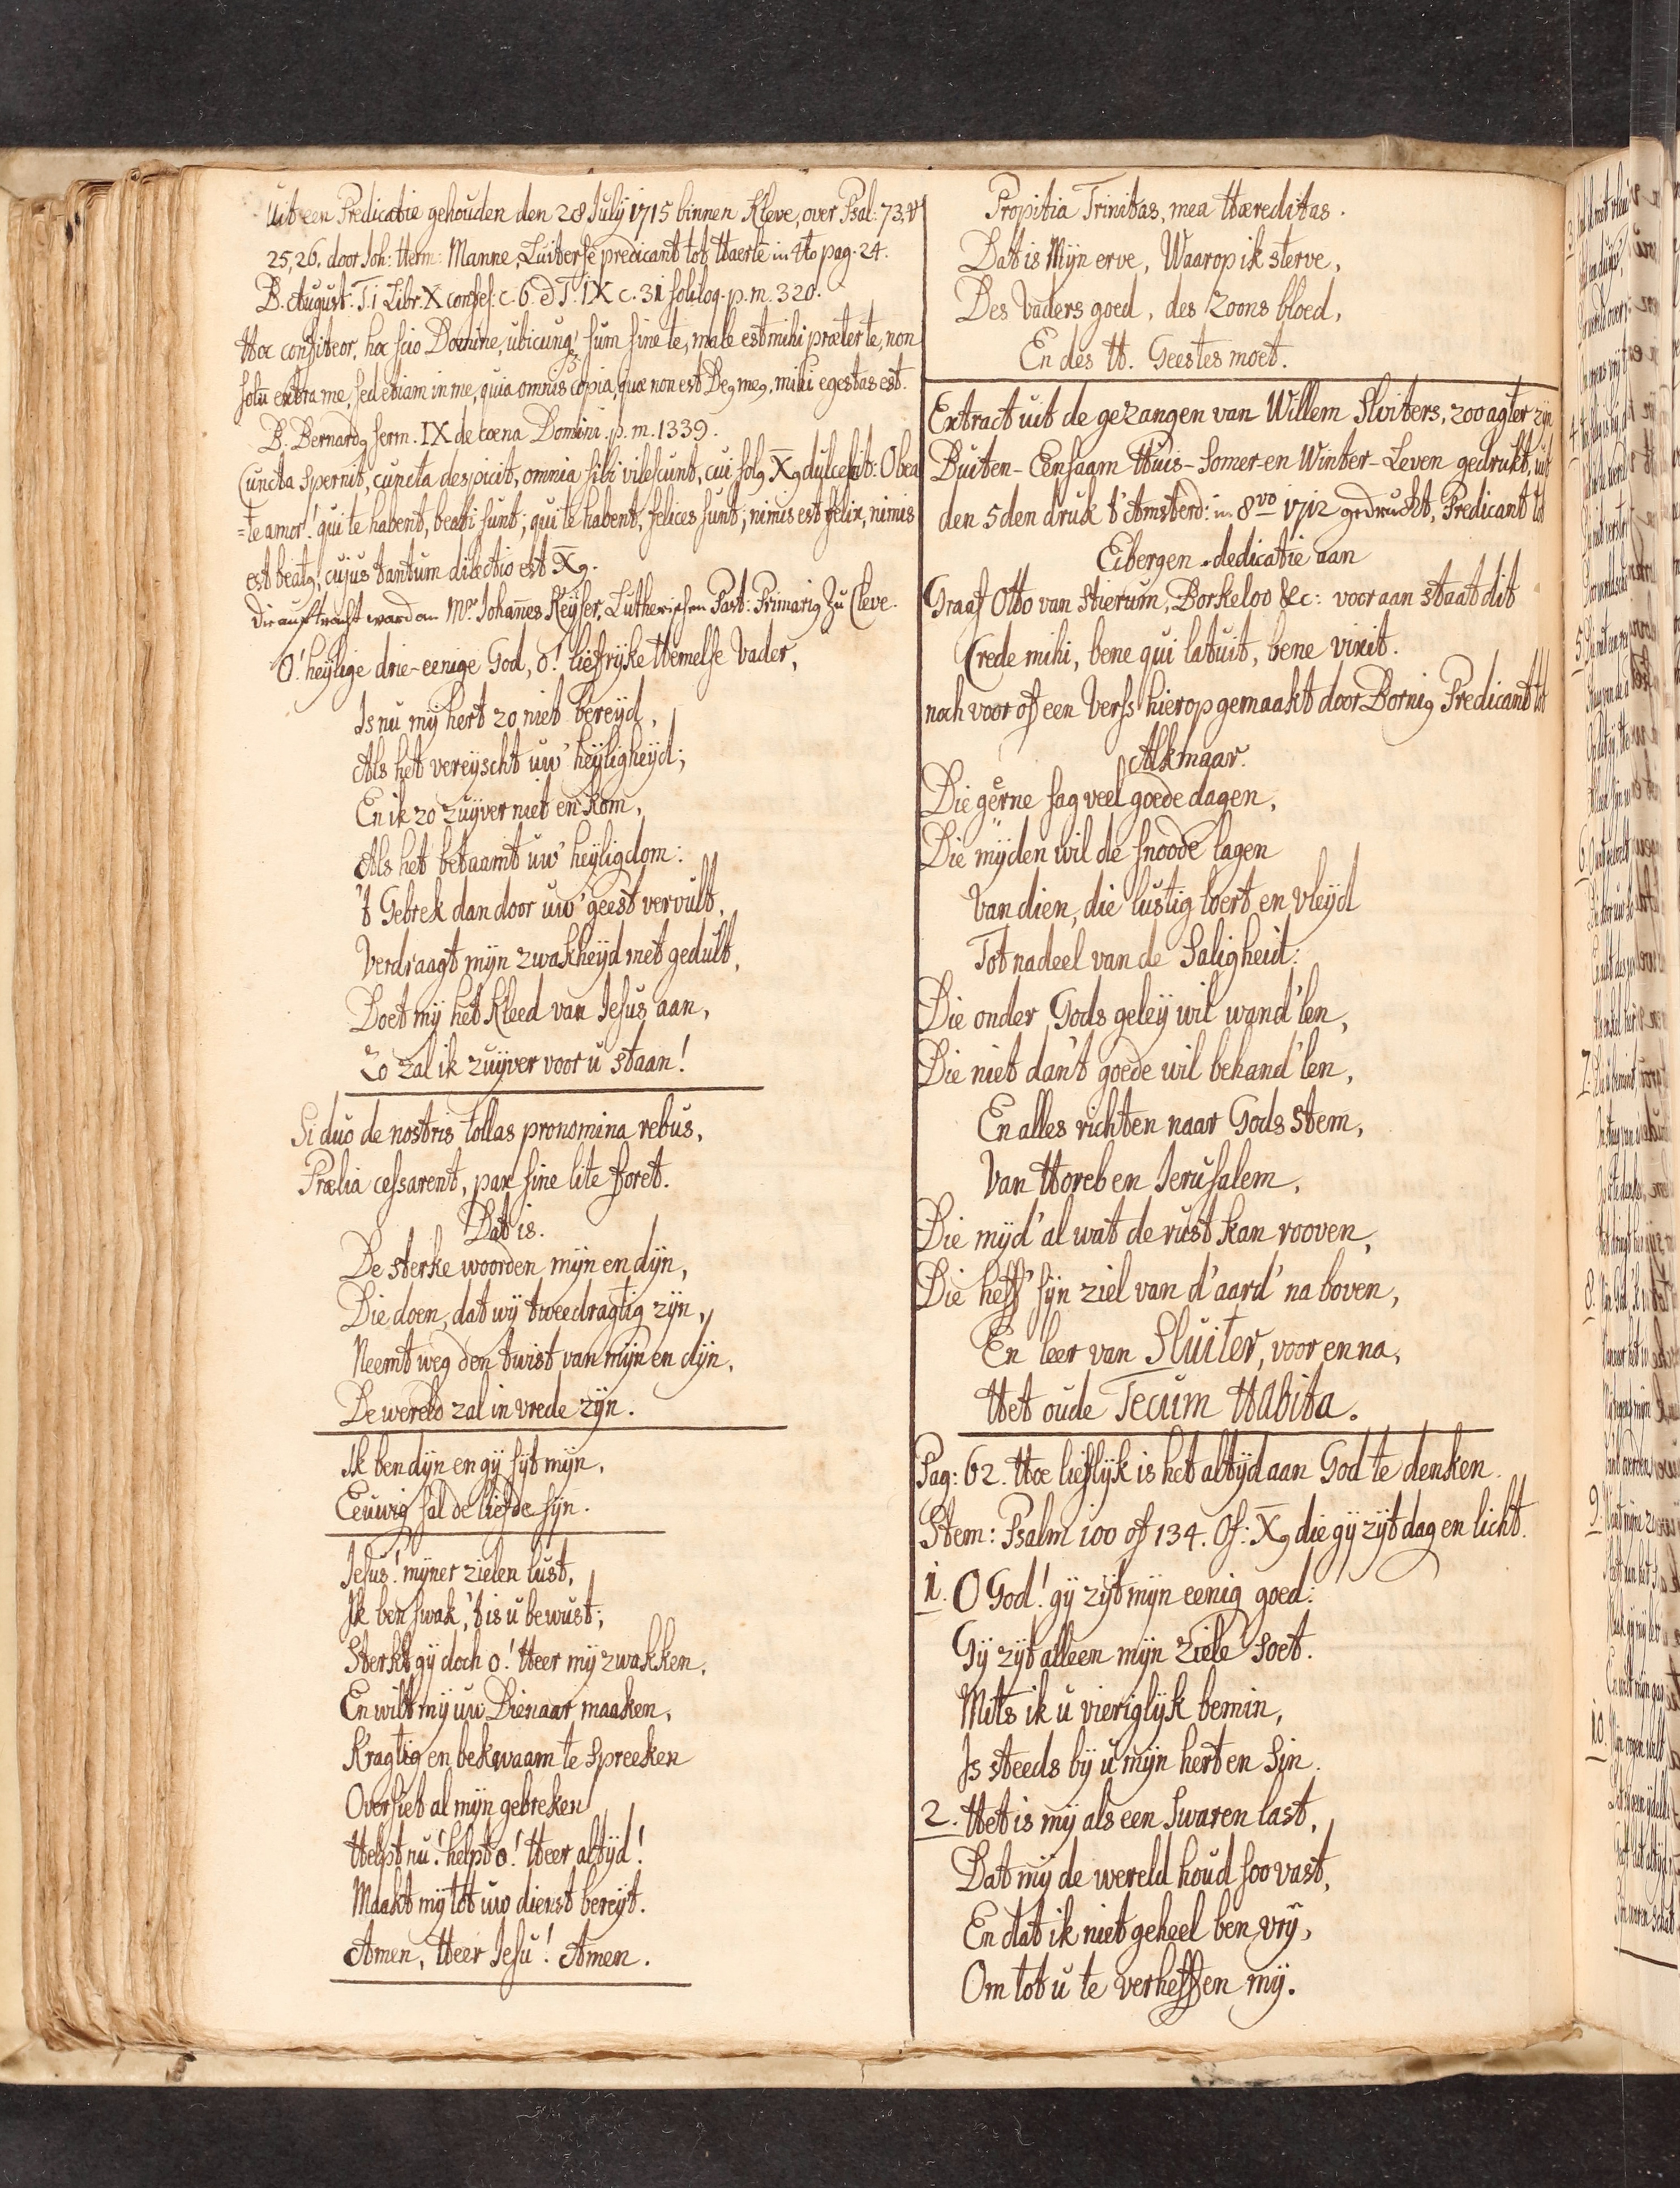 Uit een Predicatie gehouden den 28 July 1715 binnen Kleve, over Psal: 73, v
25, 26. door Joh: Herm: Manne, Luiterse predicant tot Haerle in 4to pag. 24.
B. August: T. i Libr. X confes: c. 6. & T. IX c. 31 solilog. p. m. 320.
Hoc confiteor, hoc scio Domine, ubicunq3 sum sine te, male est mihi præter te, non
solū extra me, sed etiam in me, quia omnis copia, quæ non est De9 me9, mihi egestas est.
B. Bernard9 serm. IX de coena Domini. p. m. 1339.
Cuncta spernit, cuncta despicit, omnia sibi vilescunt, cui sol9 X9 dulcescit: O bea
=te amor! qui te habent, beati sunt; qui te habent, felices sunt; nimis est felix, nimis
est beat9, cujus tantum dilectio est X9.
Die auftracht ward an Mr. Johanes Keyser, Lutherischen Past: Primari9 zu Cleve.
O! heylige drie-eenige God, o! liefryke Hemelse Vader,
Is nu mij hert zo niet bereyd,
Als het vereyscht uw' heyligheyd;
En ik zo zuyver niet en kom,
Als het betaamt uw' heyligdom:
't Gebrek dan door uw' geest vervult,
Verdraagt mijn zwakheyd met gedult,
Doet mij het kleed van Jesus aan,
Zo zal ik zuyver voor u staan!
Si duo de nostris tollas pronomina rebus,
Prælia cessarent, pax sine lite foret.
Dat is.
De sterke woorden mijn en dijn,
Die doen, dat wij tweedragtig zijn,
Neemt weg den twist van mijn en dijn,
De wereld zal in vrede zijn.
Ik ben dijn en gij sijt mijn,
Eeuwig sal de liefde sijn.
Jesus! mijner zielen lust,
Ik ben swak, 't is u bewust;
Sterkt gij doch o! Heer mij zwakken,
En wilt mij uw Dienaar maaken,
Kragtig en bekwaam te spreeken
Oversiet al mijn gebreken
Helpt nu! helpt o! Heer altijd!
Maakt mij tot uw dienst bereyt.
Amen, Heer Jesu! Amen.
Propitia Trinitas, mea Hæreditas.
Dat is Mijn erve, Waarop ik sterve,
Des Vaders goed, des Zoons bloed,
En des H. Geestes moet.
Extract uit de gezangen van Willem Sluiters, zoo agter zijn
Buiten-Eensaam Huis-Somer-en Winter-Leven gedrukt, uit
den 5den druk t' Amsterd: in 8vo 1712 gedruckt, Predicant tot
Eibergen. dedicatie aan
Graaf Otto van Stierum, Borkeloo &c: voor aan staat dit
Crede mihi, bene qui latuit, bene vixit.
noch voor of een Verss hierop gemaakt door Borni9 Predicant tot
Alkmaar.
Die gerne sag veel goede dagen,
Die mijden wil de snoode lagen
Van dien, die lustig loert en vleyd
Tot nadeel van de Saligheid:
Die onder Gods geley wil wand'len,
Die niet dan't goede wil behand'len,
En alles richten naar Gods stem,
Van Horeb en Jerusalem,
Die mijd' al wat de rust kan rooven,
Die heff' sijn ziel van d'aard' na boven,
En leer van Sluiter, voor en na,
Het oude Tecum Habita.
Pag: 62. Hoe lieflijk is het altijd aan God te denken.
Stem: Psalm 100 of 134. Of: X9 die gij zijt dag en licht.
1. O God! gij zijt mijn eenig goed:
Gij zijt alleen mijn ziele soet.
Mits ik u vieriglijk bemin,
Is steeds bij u mijn hert en sin.
2. Het is mij als een swaren last,
Dat mij de wereld houd soo vast,
En dat ik niet geheel ben vrij,
Om tot u te verheffen mij.